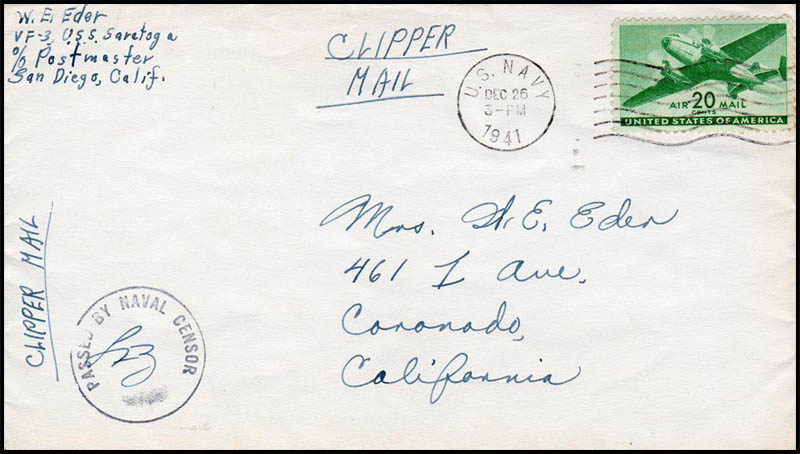 W. E. Eder
VF-3, U.S.S. Saratoga
c/o Postmaster
San Diego, Calif.
CLIPPER
MAIL
U.S. NAVY
DEC 26
3-PM
1941
AIR 20 MAIL
CENTS
UNITED STATES OF AMERICA
Mrs. W. E. Eder
461 I Ave.
Coronado,
California
CLIPPER MAIL
PASSED BY NAVAL CENSOR